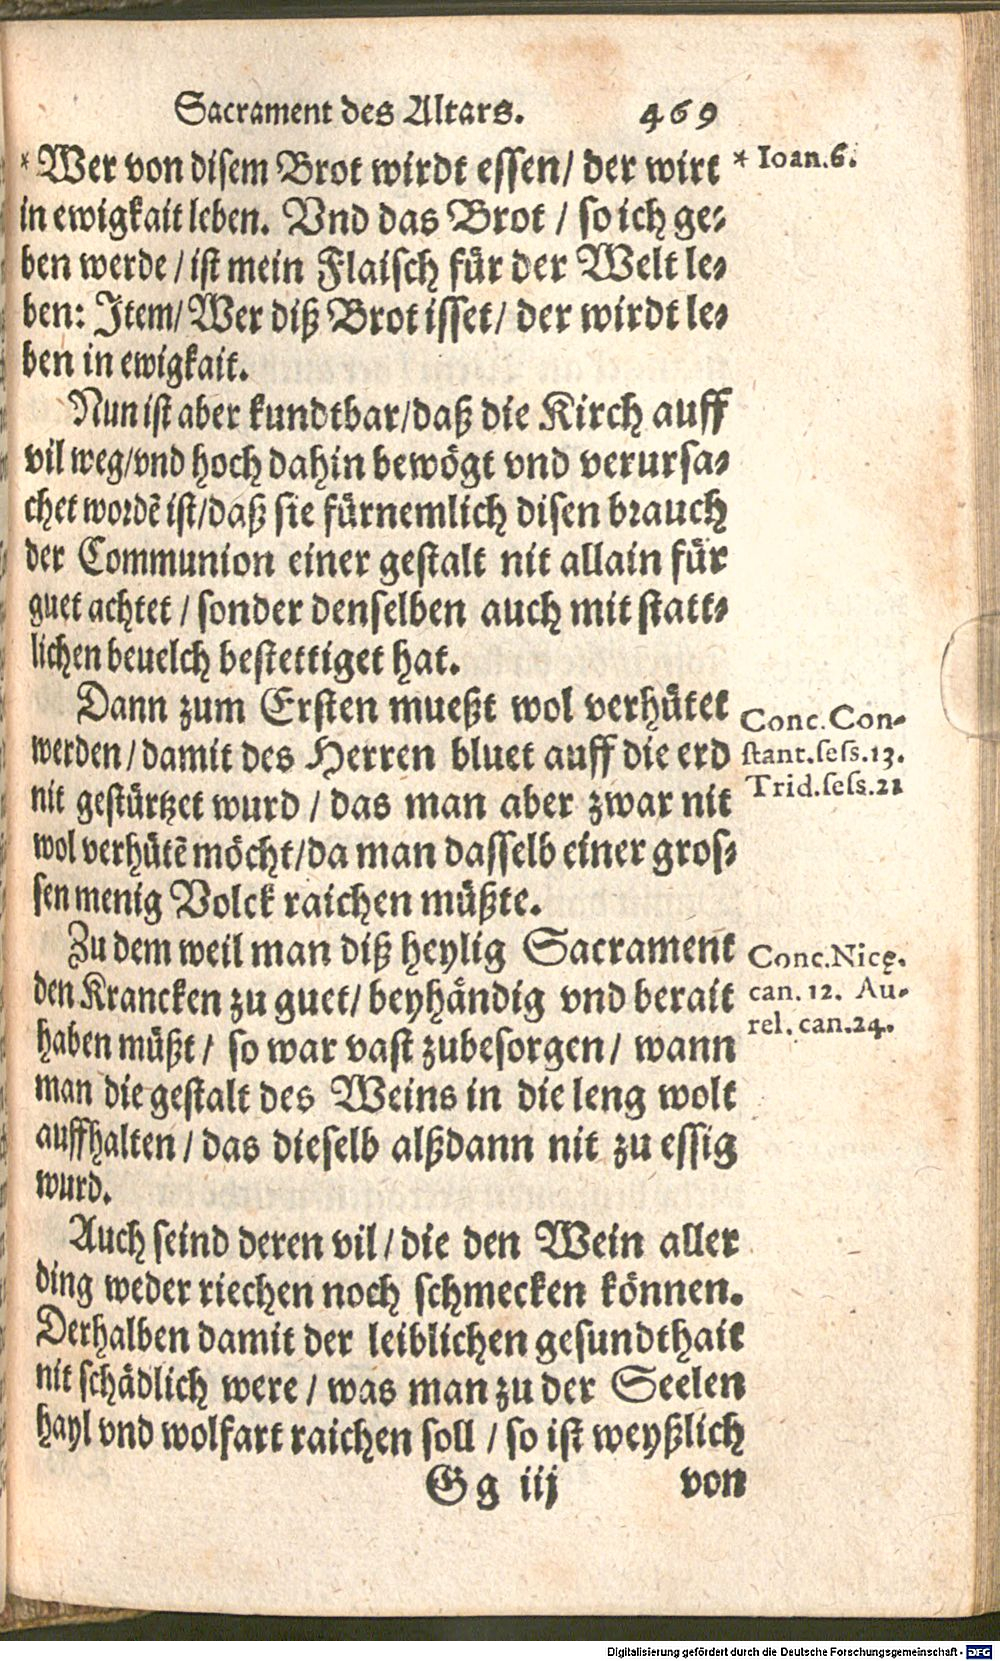 Sacrament des Altars. 469
* Wer von disem Brot wirdt essen/ der wirt
* Ioan.6.
in ewigkait leben. Vnd das Brot / so ich ge-
ben werde / ist mein Flaisch für der Welt le-
ben: Item/ Wer diß Brot isset/ der wirdt le-
ben in ewigkait.
Nun ist aber kundtbar/daß die Kirch auff
vil weg/vnd hoch dahin bewögt vnd verursa-
chet wordẽ ist/daß sie fürnemlich disen brauch
der Communion einer gestalt nit allain für
guet achtet / sonder denselben auch mit statt-
lichen beuelch bestettiget hat.
Dann zum Ersten mueßt wol verhütet
werden / damit des Herren bluet auff die erd
nit gestürtzet wurd / das man aber zwar nit
wol verhütẽ möcht/da man dasselb einer gros-
sen menig Volck raichen müßte.
Conc.Con-
stant.sess.13.
Trid.sess.21
Zu dem weil man diß heylig Sacrament
den Krancken zu guet/ beyhändig vnd berait
haben müßt / so war vast zubesorgen / wann
man die gestalt des Weins in die leng wolt
auffhalten / das dieselb alßdann nit zu essig
wurd.
Conc.Nicę.
can. 12. Au-
rel. can.24.
Auch seind deren vil / die den Wein aller
ding weder riechen noch schmecken können.
Derhalben damit der leiblichen gesundthait
nit schädlich were / was man zu der Seelen
hayl vnd wolfart raichen soll / so ist weyßlich
Gg iij von
Digitalisierung gefördert durch die Deutsche Forschungsgemeinschaft - DFG